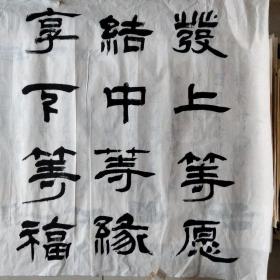 發上等愿
結中等緣
享下等福